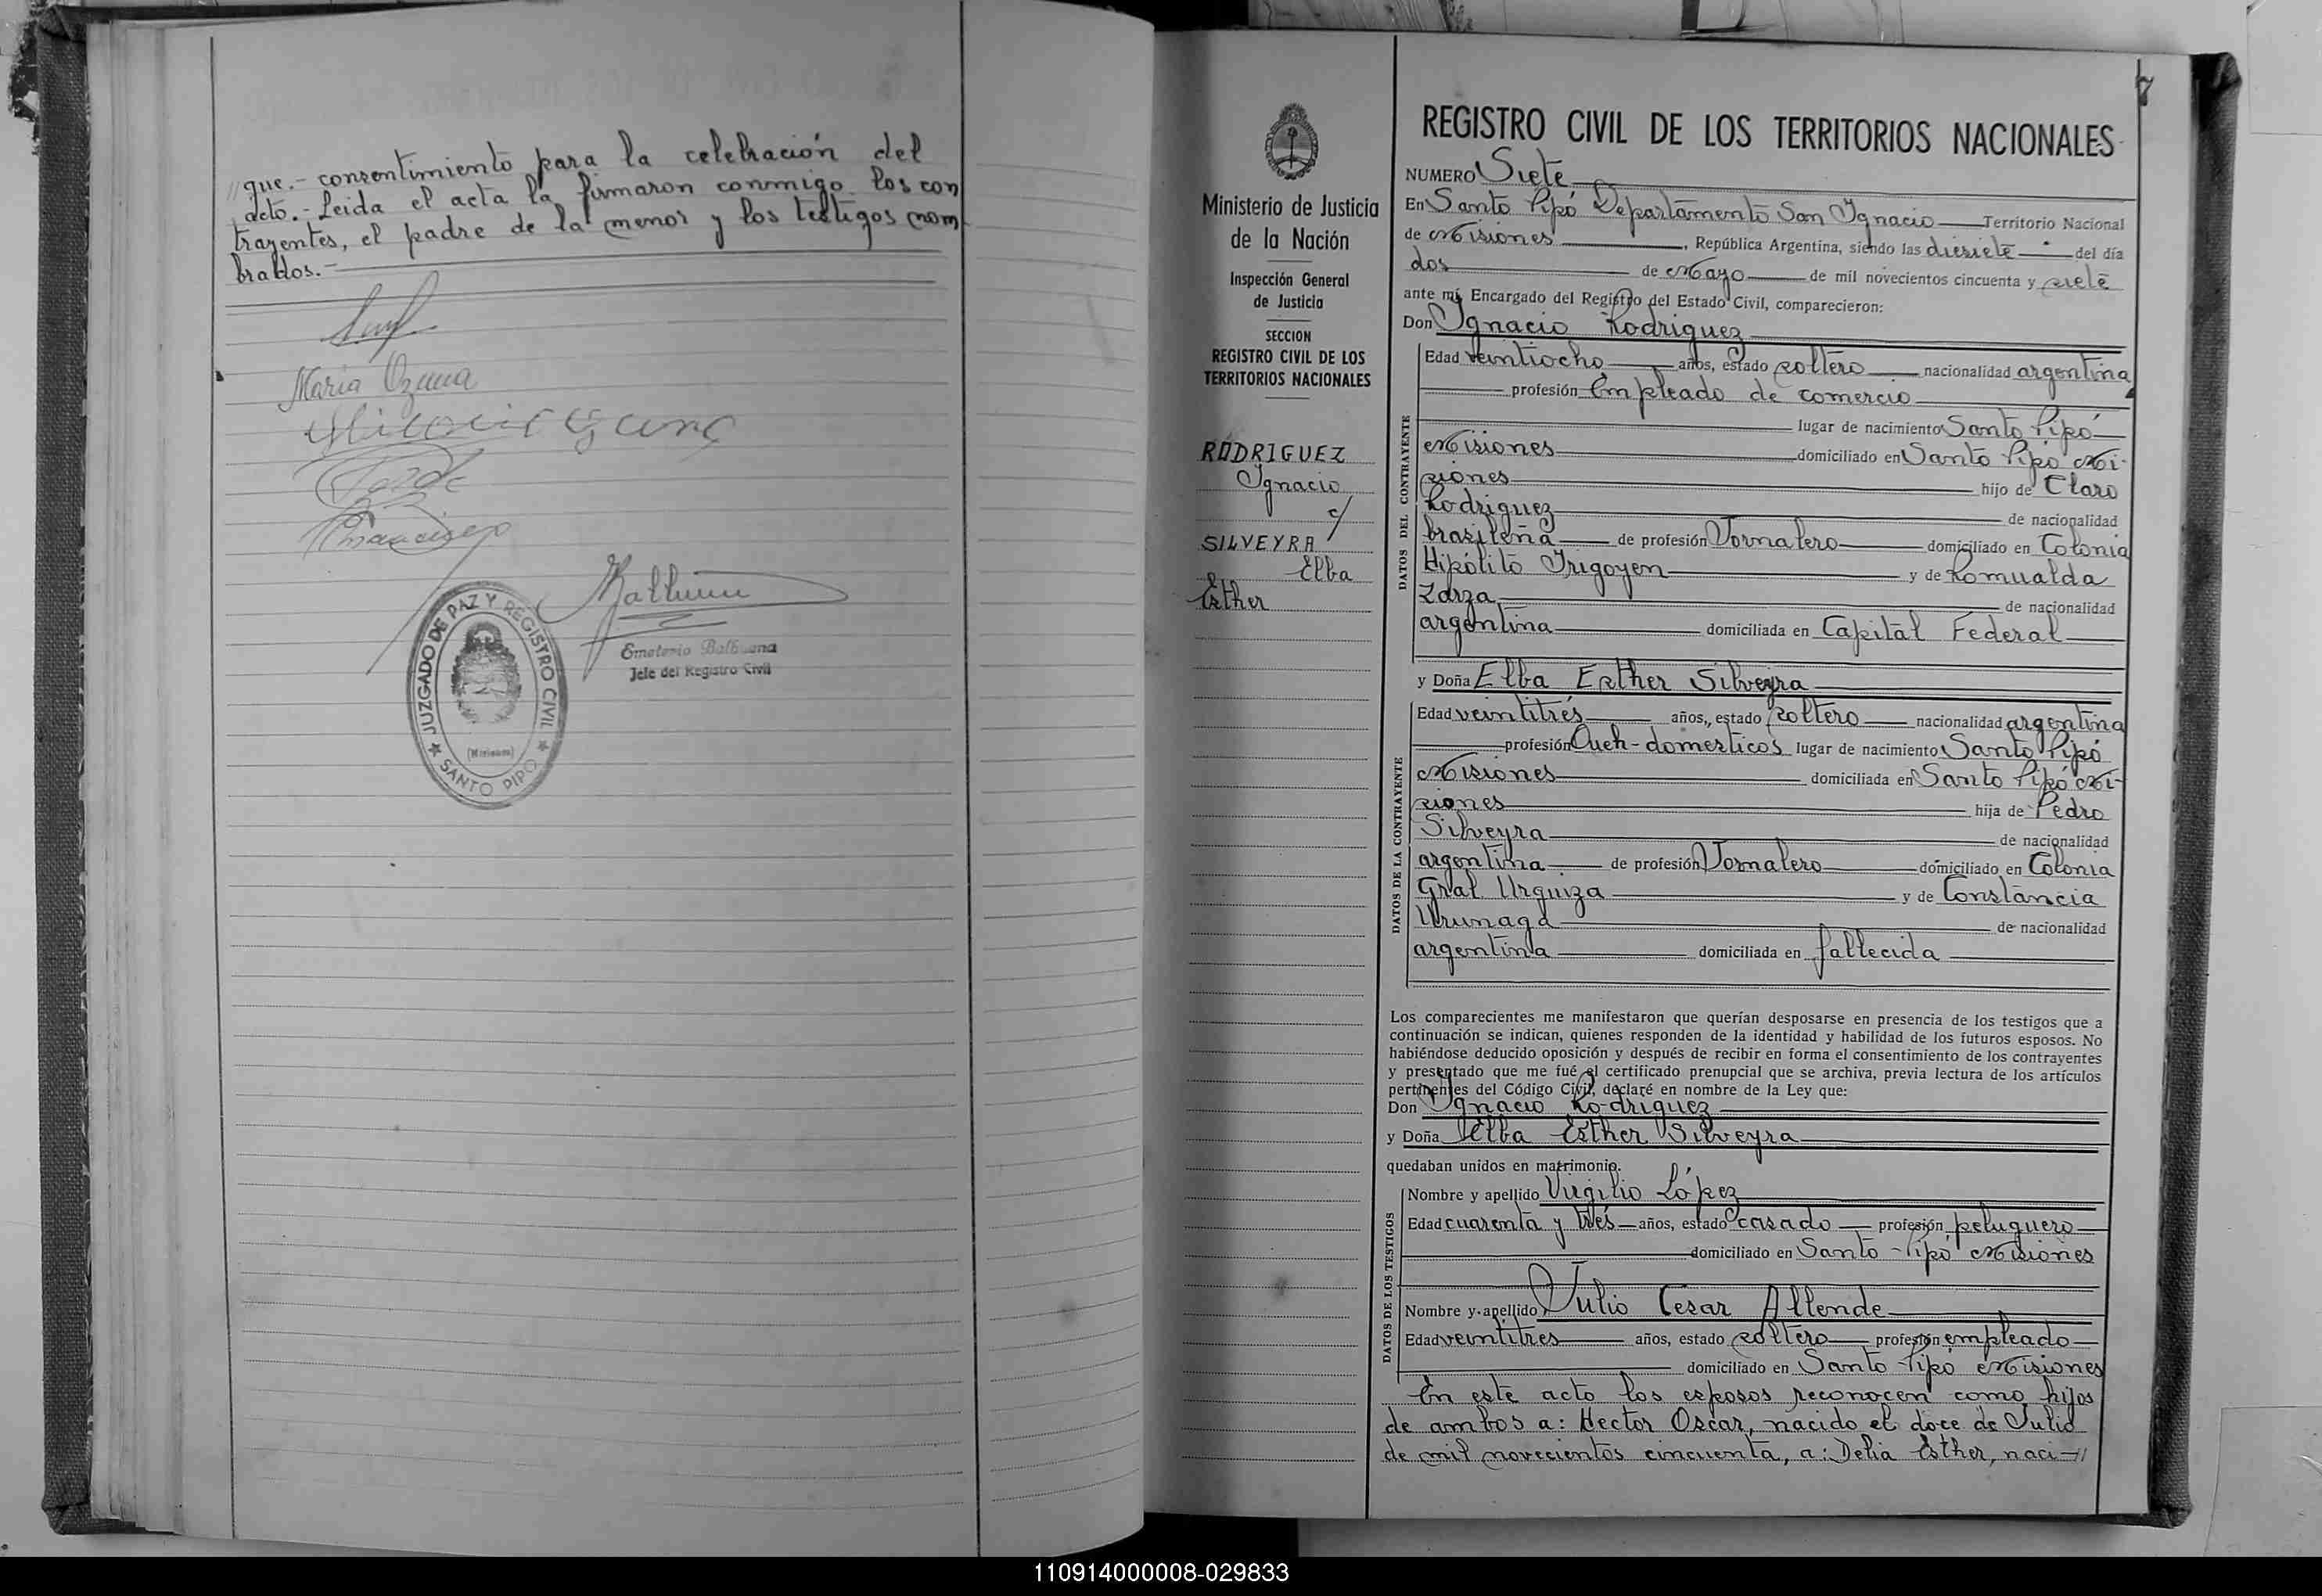 que.- consentimiento para la celebración del
acto.- Leida el acta la firmaron conmigo los con
trayentes, el padre de la menor y los testigos nom
brados.-
Maria Ozuna
Emeterio Balbuena
Jefe del Registro Civil
JUZGADO DE PAZ Y REGISTRO CIVIL
(Misiones)
SANTO PIPO
7
Ministerio de Justicia
de la Nación
Inspección General
de Justicia
SECCION
REGISTRO CIVIL DE LOS
TERRITORIOS NACIONALES
RODRIGUEZ
Ignacio
c/
SILVEYRA
Elba
Esther
REGISTRO CIVIL DE LOS TERRITORIOS NACIONALES
NUMERO Siete
En Santo Pipó Departamento San Ignacio Territorio Nacional
de Misiones, República Argentina, siendo las diesiete del día
dos de Mayo de mil novecientos cincuenta y siete
ante mí, Encargado del Registro del Estado Civil, comparecieron:
Don Ignacio Rodriguez
DATOS DEL CONTRAYENTE
Edad veintiocho años, estado soltero nacionalidad argentina
profesión Empleado de comercio
lugar de nacimiento Santo Pipó
Misiones domiciliado en Santo Pipó Mi-
siones hijo de Claro
Rodriguez de nacionalidad
brasileña de profesión Jornalero domiciliado en Colonia
Hipólito Irigoyen y de Romualda
Zarza de nacionalidad
argentina domiciliada en Capital Federal
y Doña Elba Esther Silveyra
DATOS DE LA CONTRAYENTE
Edad veintitrés años, estado soltero nacionalidad argentina
profesión Queh-domesticos lugar de nacimiento Santo Pipó
Misiones domiciliada en Santo Pipó Mi-
siones hija de Pedro
Silveyra de nacionalidad
argentina de profesión Jornalero domiciliado en Colonia
Gral Urquiza y de Constancia
Urunaga de nacionalidad
argentina domiciliada en fallecida
Los comparecientes me manifestaron que querían desposarse en presencia de los testigos que a
continuación se indican, quienes responden de la identidad y habilidad de los futuros esposos. No
habiéndose deducido oposición y después de recibir en forma el consentimiento de los contrayentes
y presentado que me fué el certificado prenupcial que se archiva, previa lectura de los artículos
pertinentes del Código Civil, declaré en nombre de la Ley que:
Don Ignacio Rodriguez
y Doña Elba Esther Silveyra
quedaban unidos en matrimonio.
DATOS DE LOS TESTIGOS
Nombre y apellido Virgilio López
Edad cuarenta y tres años, estado casado profesión peluquero
domiciliado en Santo Pipó Misiones
Nombre y apellido Julio Cesar Allende
Edad veintitres años, estado soltero profesión empleado
domiciliado en Santo Pipó Misiones
En este acto los esposos reconocen como hijos
de ambos a: Hector Oscar, nacido el doce de Julio
de mil novecientos cincuenta, a: Delia Esther, naci-//
110914000008-029833